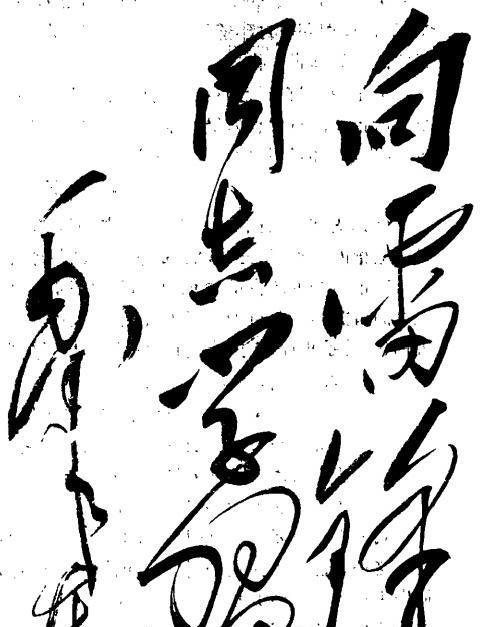 向雷鋒
同志学習
毛泽东